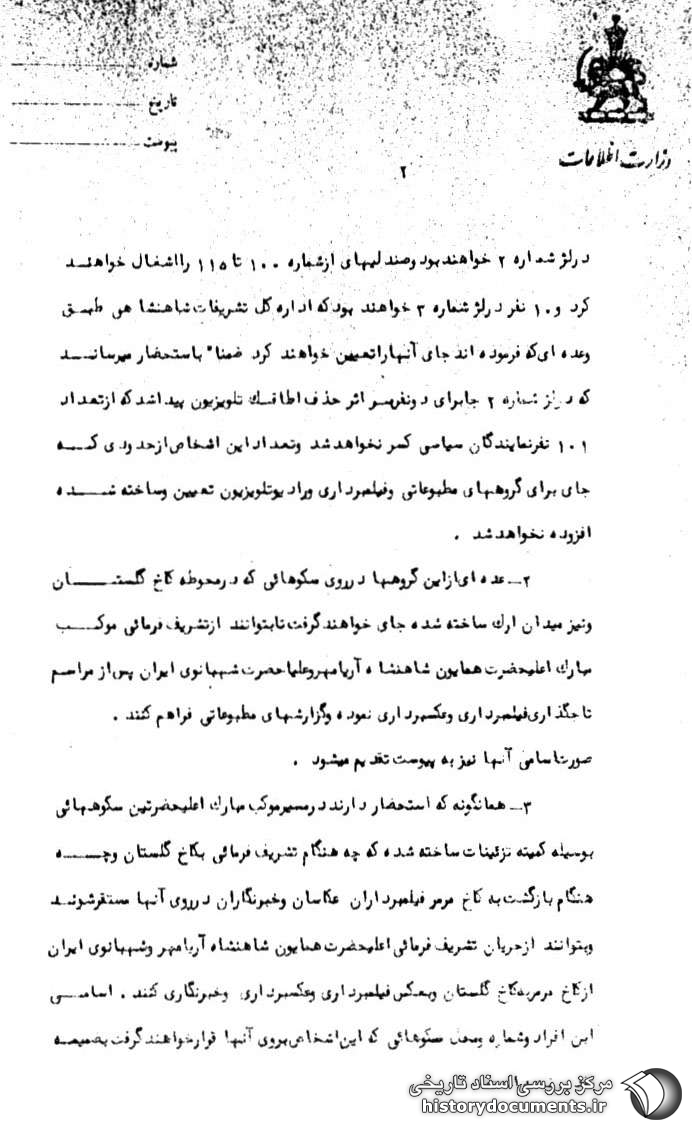 شماره
تاریخ
پیوست
وزارت اطلاعات
۲
در لژ شماره ۲ خواهند بود وصندلیهای از شماره ۱۰۰ تا ۱۱۵ را اشغال خواهند
کرد و ۱۰ نفر در لژ شماره ۳ خواهند بود که اداره کل تشریفات شاهنشاهی طبق
وعده ای که فرموده اند جای آنها را تعیین خواهند کرد ضمنا" باستحضار میرساند
که در لژ شماره ۲ جا برای دو نفر بر اثر حذف اطاقک تلویزیون پیدا شد که از تعداد
۱۰۱ نفر نمایندگان سیاسی کمتر نخواهد شد وتعداد این اشخاص از حدودی که
جای برای گروههای مطبوعاتی وفیلمبرداری ورادیو تلویزیون تعیین وساخته شده
افزوده نخواهد شد .
۲ـ عده ای از این گروهها در روی سکوهائی که در محوطه کاخ گلستان
ونیز میدان ارک ساخته شده جای خواهند گرفت تا بتوانند از تشریف فرمائی موکب
مبارک اعلیحضرت همایون شاهنشاه آریامهر وعلیاحضرت شهبانوی ایران پس از مراسم
تاجگذاری فیلمبرداری وعکسبرداری نموده وگزارشهای مطبوعاتی فراهم کنند .
صورت اسامی آنها نیز به پیوست تقدیم میشود .
۳ـ همانگونه که استحضار دارند در مسیر موکب مبارک اعلیحضرتین سکوههائی
بوسیله کمیته تزئینات ساخته شده که چه هنگام تشریف فرمائی بکاخ گلستان وچه
هنگام بازگشت به کاخ مرمر فیلمبرداران عکاسان وخبرنگاران در روی آنها مستقر شوند
وبتوانند از جریان تشریف فرمائی اعلیحضرت همایون شاهنشاه آریامهر وشهبانوی ایران
از کاخ مرمر به کاخ گلستان وبعکس فیلمبرداری وعکسبرداری وخبرنگاری کنند . اسامی
این افراد وشماره ومحل سکوهائی که این اشخاص بروی آنها قرار خواهند گرفت بضمیمه
مرکز بررسی اسناد تاریخی
historydocuments.ir